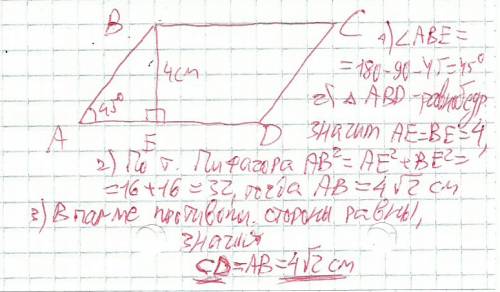 B
C
4см
45°
A
E
D
1) ∠ABE =
= 180-90-45=45°
2) △ ABD - равнобедр.
значит AE=BE=4,
2) По т. Пифагора AB²= AE²+BE²=
=16+16=32, тогда AB = 4√2 см
3) В пар-ме противопол. стороны равны,
значит
CD=AB=4√2 см